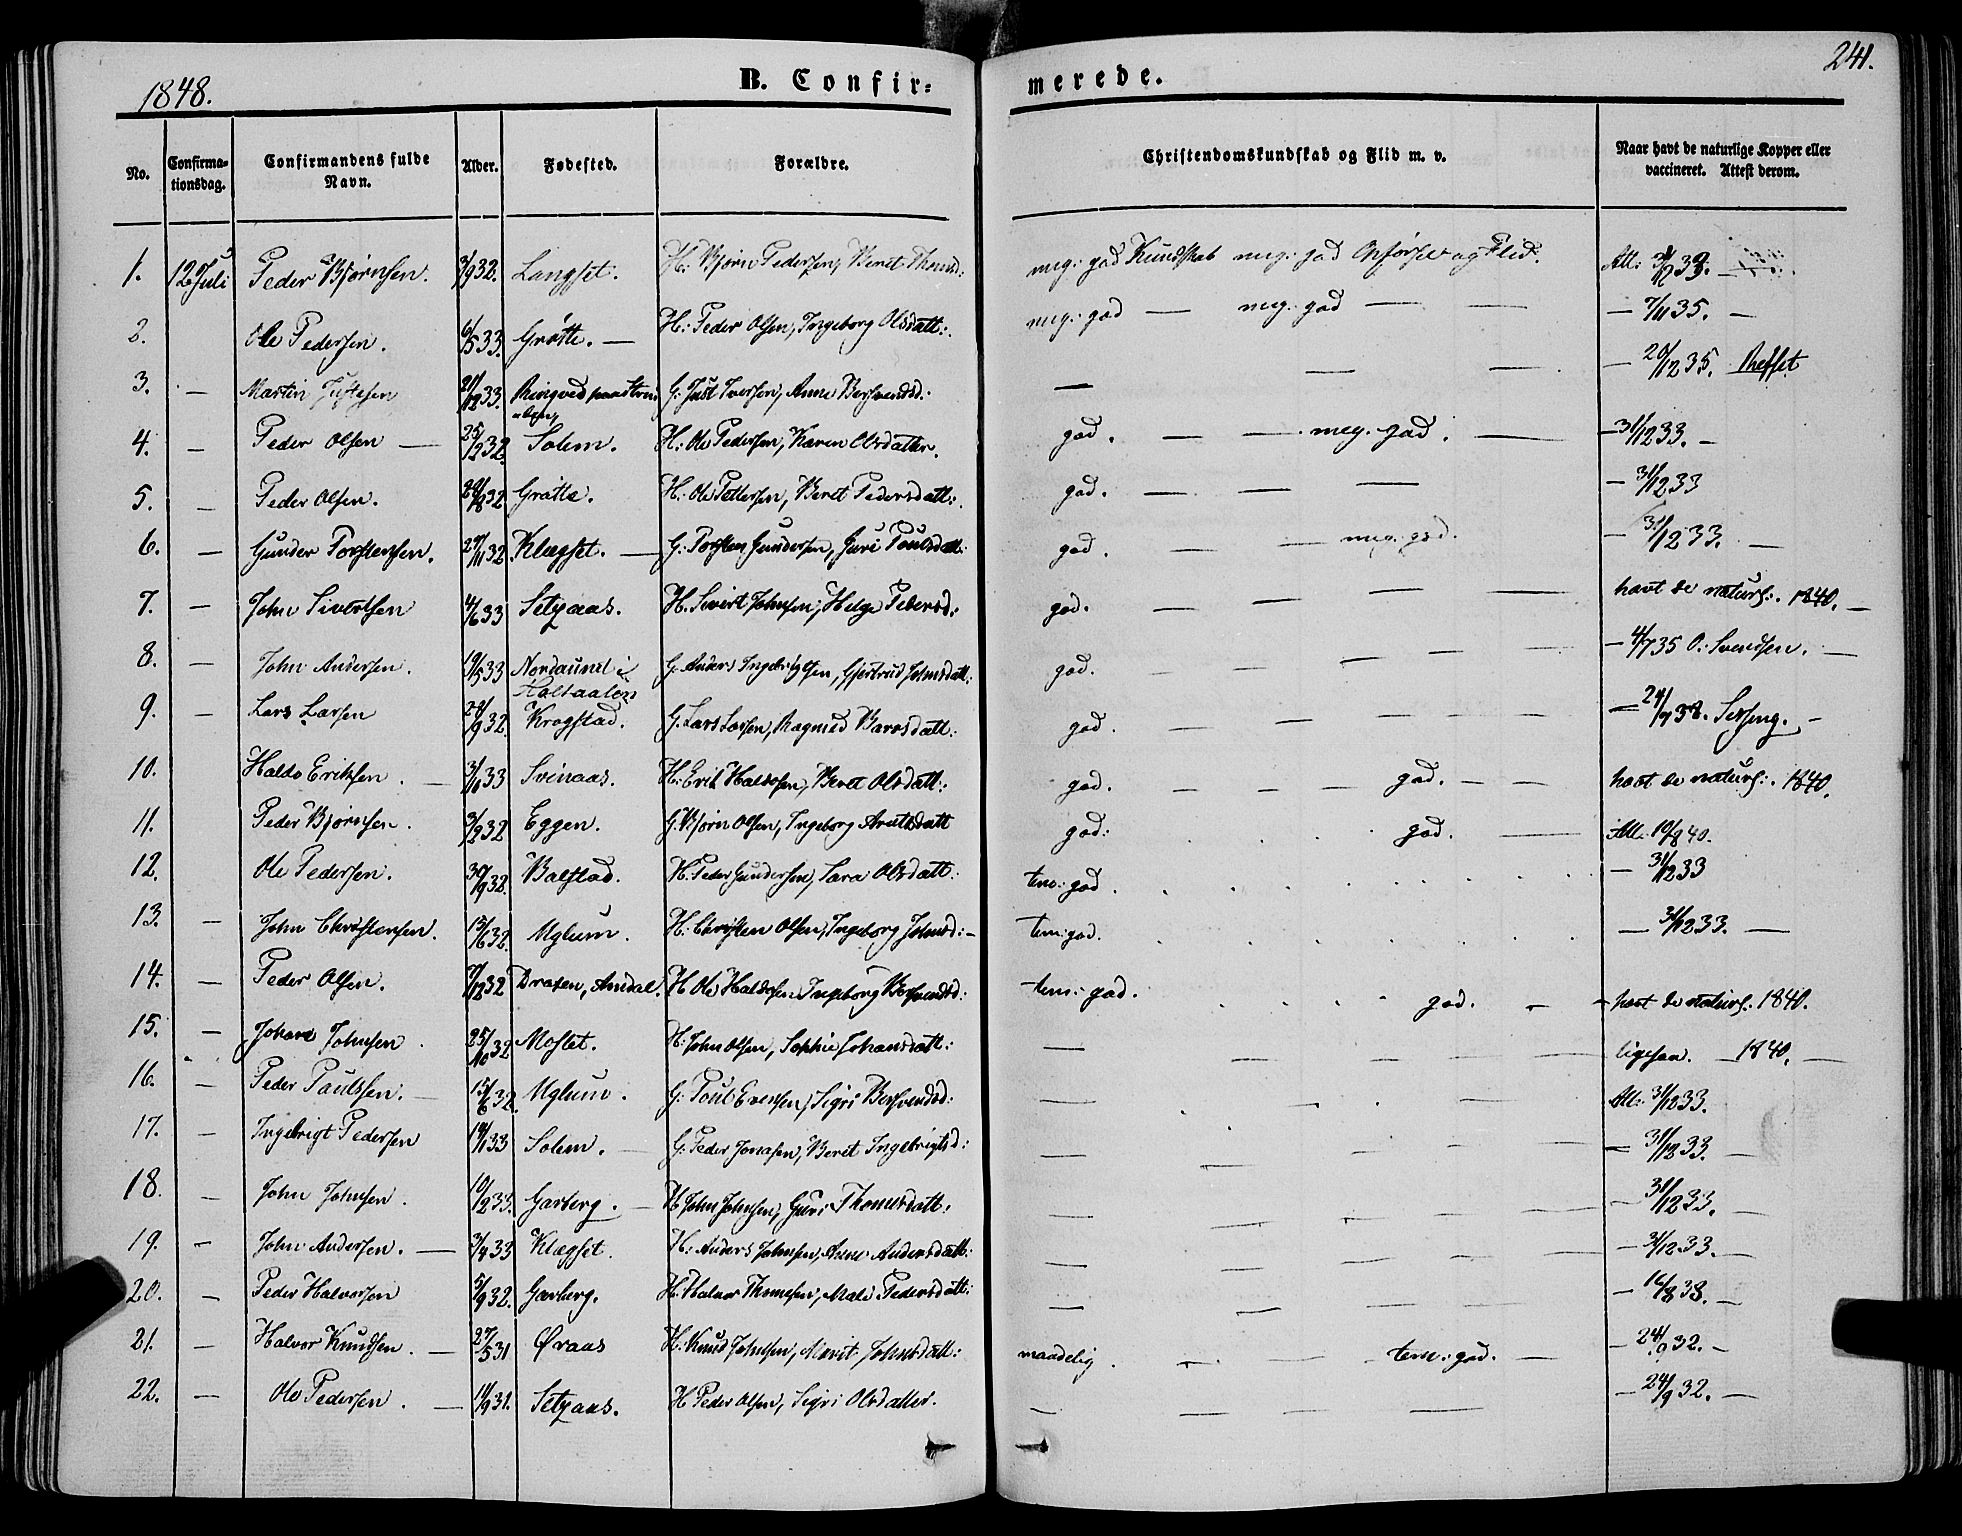 1848.
B. Confir=
merede.
241.
No.
Confirma-
tionsdag.
Confirmandens fulde
Navn.
Alder.
Fødested.
Forældre.
Christendomskundskab og Flid m. v.
Naar havt de naturlige Kopper eller
vaccineret. Attest derom.
1. 12 Juli Peder Bjørnsen. 3/9 32. Langset. H: Bjørn Pedersen, Beret Thomd: meg: god Kundskab meg: god Opførsel og Flid. Att:
2. Ole Pedersen. 6/5 33. Grøtte. — H: Peder Olsen, Ingeborg Olsdatt: meg: god — meg: god — — — 7/11 35. —
3. — Martin Justesen 21/12 33. G: Just Iversen, Anne Berhvendsd: — — — — 20/12 35.
4. — Peder Olsen — 25/9 32. Solem. H: Ole Pedersen, Karen Olsdatter. god. — — meg. god. — — 31/12 33. —
5. — Peder Olsen. 24/8 32. Grøtte. H: Ole Pettersen, Beret Pedersdatt: god. — — — — 31/12 33
6. — Gunder Torstensen. 27/11 32 Klægset. — G: Torsten Gundersen, Guri Poulsdatt: god. — — meg. god. — 31/12 33. —
7. — John Sivertsen 4/6 33 Setsaas. H. Sivert Johnsen, Helge Pedersd: god. — — — — havt de naturl:. 1840. —
8. — John Andersen. 19/5 33 Nordaunet i Holtaalen G. Anders Ingebrigtsen, Gjertrud Johnsdatt: god. — — — — — 4/7 35 O: Svendsen. —
9. — Lars Larsen 28/9 32. Krogstad. G. Lars Larsen, Ragnild Baredsdatt: god. — — — — — 24/7 38. —
10. Haldo Eriksen. — 3/10 33 Svinaas. H: Erik Haldosen, Beret Olsdatt: god. — — — god. — — havt de naturl:. 1840.
11. Peder Bjørnsen. 3/9 32 Eggen. G. Bjørn Olsen, Ingeborg Arntsdatt god: god. — Att: 10/8 40.
12. Ole Pedersen. 30/9 32. Balstad. H. Peder Gundersen, Sara Olsdatt: tem: god. — 31/12 33
13. — John Christensen. 13/6 32. Uglum. H: Christen Olsen, Ingeborg Johnsd: — tem: god. — 31/12 33. —
14. — Peder Olsen. 7/12 32 Draxen, Amdal. H Ole Haldosen Ingeborg Berhvendsd: tem: god. god. — — havt de naturl. 1840.
15. — Johan Johnsen. 25/10 32 Moslet. H: John Olsen, Sophie Johansdatt: — — — — — ligesaa. — 1840. —
16. — Peder Paulsen. — 15/6 32. Uglum. G: Poul Evensen, Sigri Berhvendsd: — — — Att: 31/12 33.
17. — Ingebrigt Pedersen 14/1 33 Solem. — G. Peder Jonasen, Beret Ingebrigtsd: — — — 31/12 33. —
18. — John Johnsen. 10/2 33. Garberg. — H John Johnsen, Guri Thomesdatt: — — — — — — 31/12 33. —
19. — John Andersen. — 3/4 33 Klægset. H: Anders Johnsen, Anne Andersdatt: — — — — — — 31/12 33. —
20. — Peder Halvorsen 5/9 32. Garberg. H: Halvor Thomesen, Mali Pedersdatt: — — — — — — 16/8 38. —
21. — Halvor Knudsen. — 27/5 31 Øraas H: Knud Johnsen, Marit Johnsdatt: maadelig. — — tem: god. — — 24/9 32. —
22. — Ole Pedersen. — 14/9 31. Setsaas. H Peder Olsen, Sigri Olsdatter. — — — — — 24/9 32. —